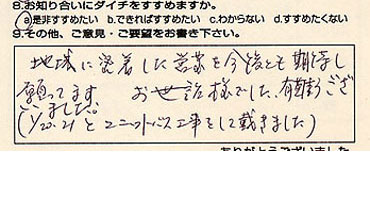 8.お知り合いにダイチをすすめますか。
a)是非すすめたい b.できればすすめたい c.わからない d.すすめたくない
9.その他、ご意見・ご要望をお書き下さい。
地域に密着した営業を今後とも期待し
願ってます お世話様でした。有難うござ
いました。
(1/20.21とユニットバス工事をして戴きました)
ありがとうございました